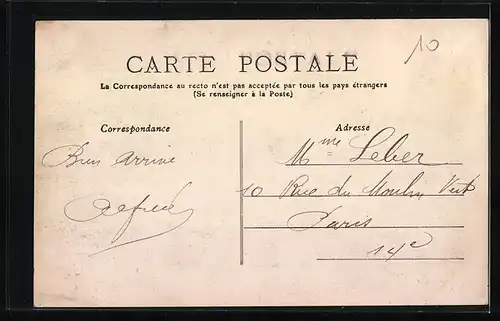 10
CARTE POSTALE
La Correspondance au recto n'est pas acceptée par tous les pays étrangers
(Se renseigner à la Poste)
Correspondance
Adresse
Bien arrivé
Alfred
Mme Leber
10 Rue du Moulin Vert
Paris
14e